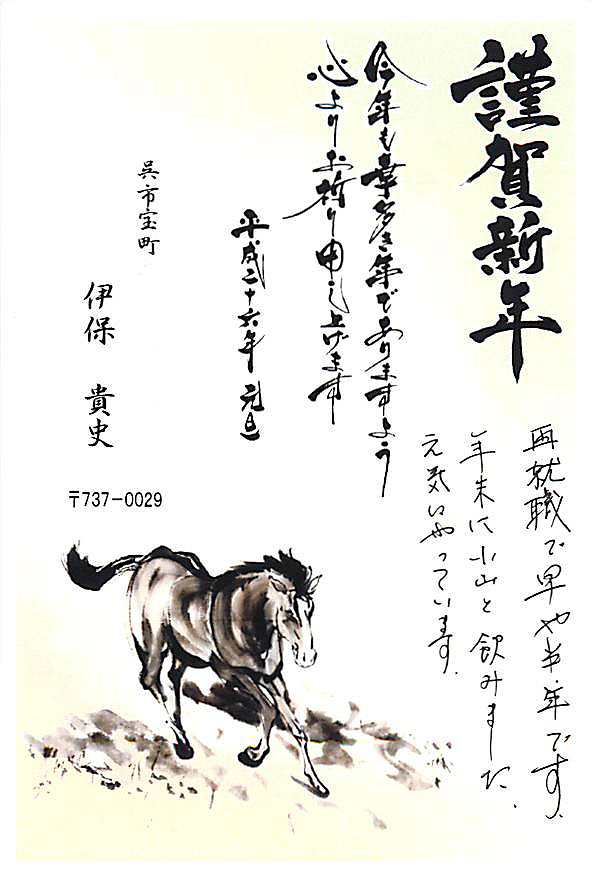 謹賀新年
今年も幸多き年でありますよう
心よりお祈り申し上げます
平成二十六年 元旦
呉市宝町
伊保 貴史
〒737-0029
再就職で早や半年です。
年末に小山と飲みました。
元気にやっています。